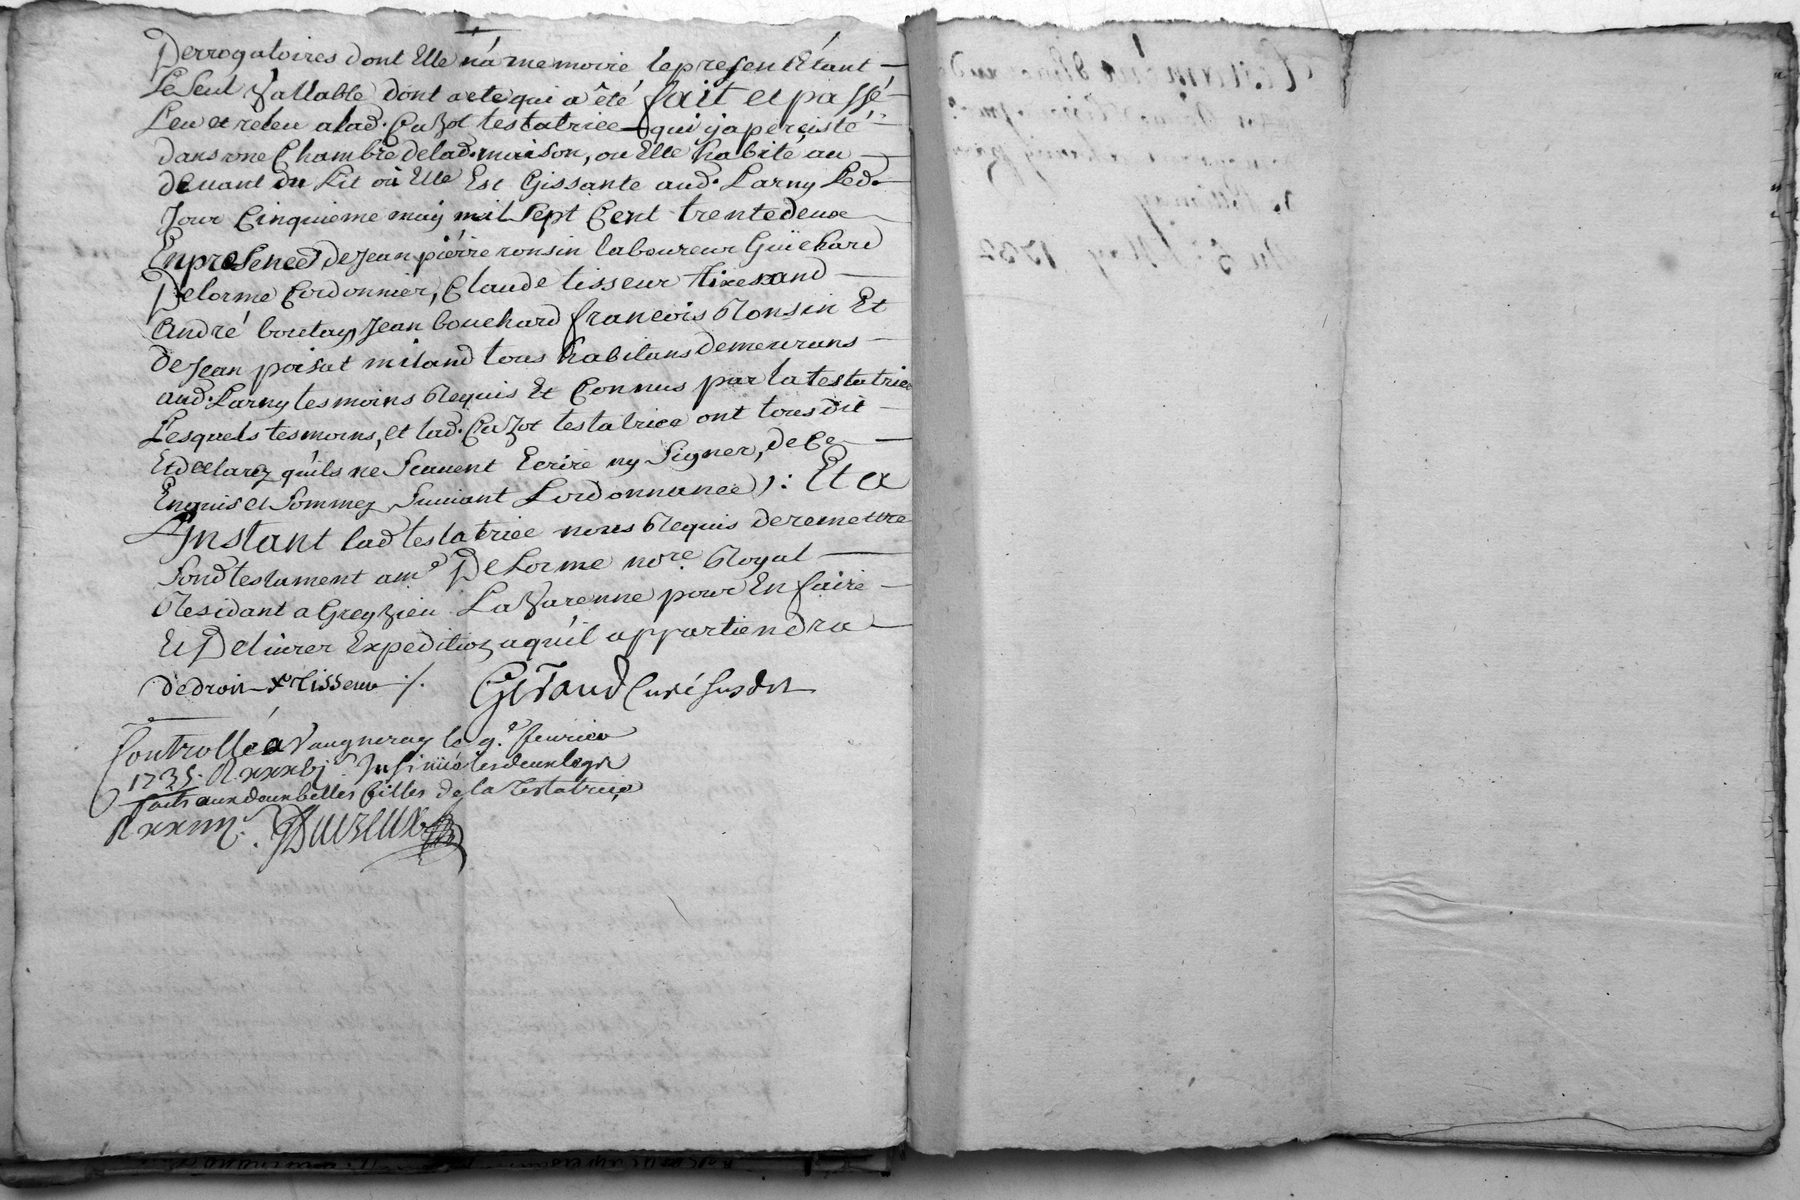 Derrogatoires dont Elle n'a memoire le present Etant
Le Seul Vallable dont acte qui a êté fait et passé
Leu et releu a lad. Cuzot testatrice qui y a percisté
dans une Chambre de lad. maison, ou Elle habité au
devant du Lit où Elle Est Gissante aud. Larny Led.
Jour Cinquieme may mil Sept Cent trente deux
En presence de Jean pierre ronsin laboureur Guichard
Delorme Cordonnier, Claude tisseur tixerand
André boutay Jean bouchard francois Ronsin Et
de Jean poisat miland tous habitans demeurans
aud. Larny tesmoins Requis Et Connus par la testatrice
Lesquels tesmoins, et lad. Cuzot testatrice ont tous dit
Et declarez quils ne Scauent Ecrire ny Signer, de Ce
Enquis et Sommez Suivant Lordonnance ): Et a
L'Instant lad testatrice nous Requis de remettre
Sond testament a me Delorme nore. Royal
Residant a Greyzieu La Varenne pour En faire
Et Deliurer Expedition a qu'il appartiendra
de droit x tisseur ./. Geraud Curé susdit
Controllé a Vaugneray le 9e feurier
1735. R xxxbj s Insinué les deux legs
faits aux deux belles filles de la Testatrice
R xxiiij s.
Du 5e May 1732